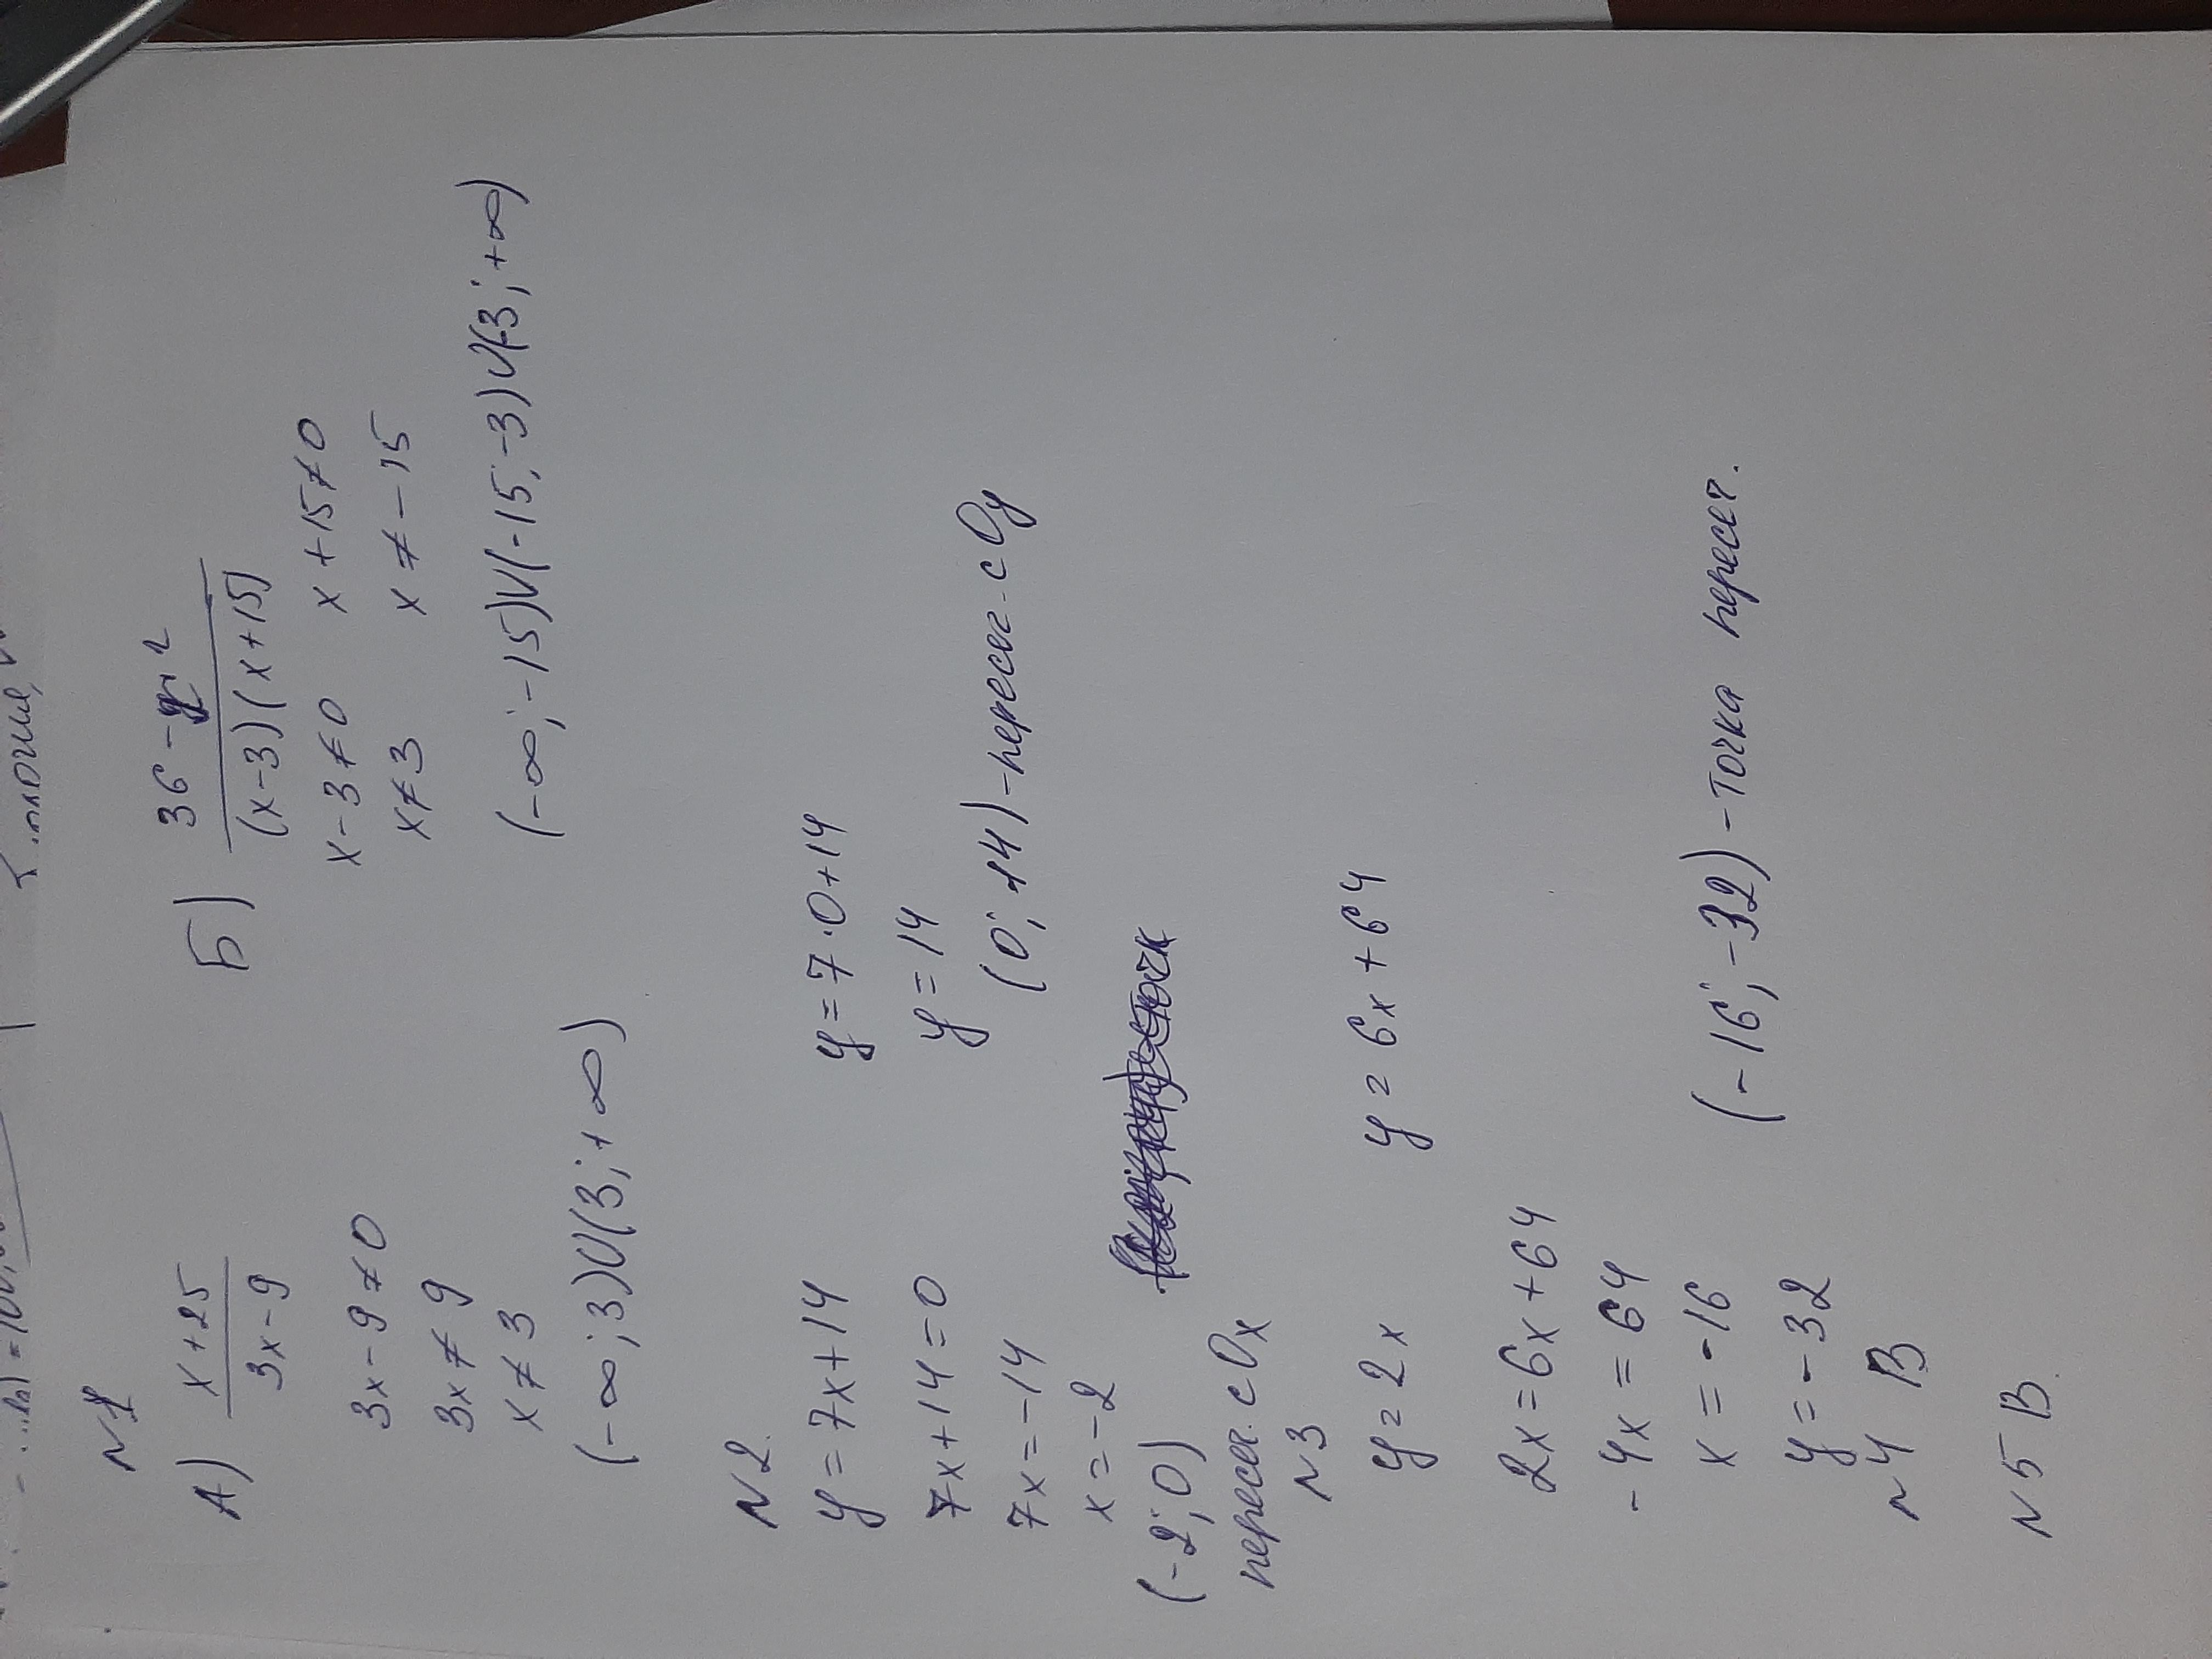 N1
А) x+25 / 3x-9
3x-9≠0
3x≠9
x≠3
(-∞;3)U(3;+∞)
Б) 36-y² / (x-3)(x+15)
x-3≠0 x+15≠0
x≠3 x≠-15
(-∞;-15)U(-15;-3)U(-3;+∞)
N2.
y=7x+14
7x+14=0
7x=-14
x=-2
(-2;0)
пересеч. с Ox
y=7·0+14
y=14
(0;14)-пересеч. с Oy
N3
y=2x y=6x+64
2x=6x+64
-4x=64
x=-16
y=-32
(-16;-32)-точка пересеч.
N4 В
N5 В.